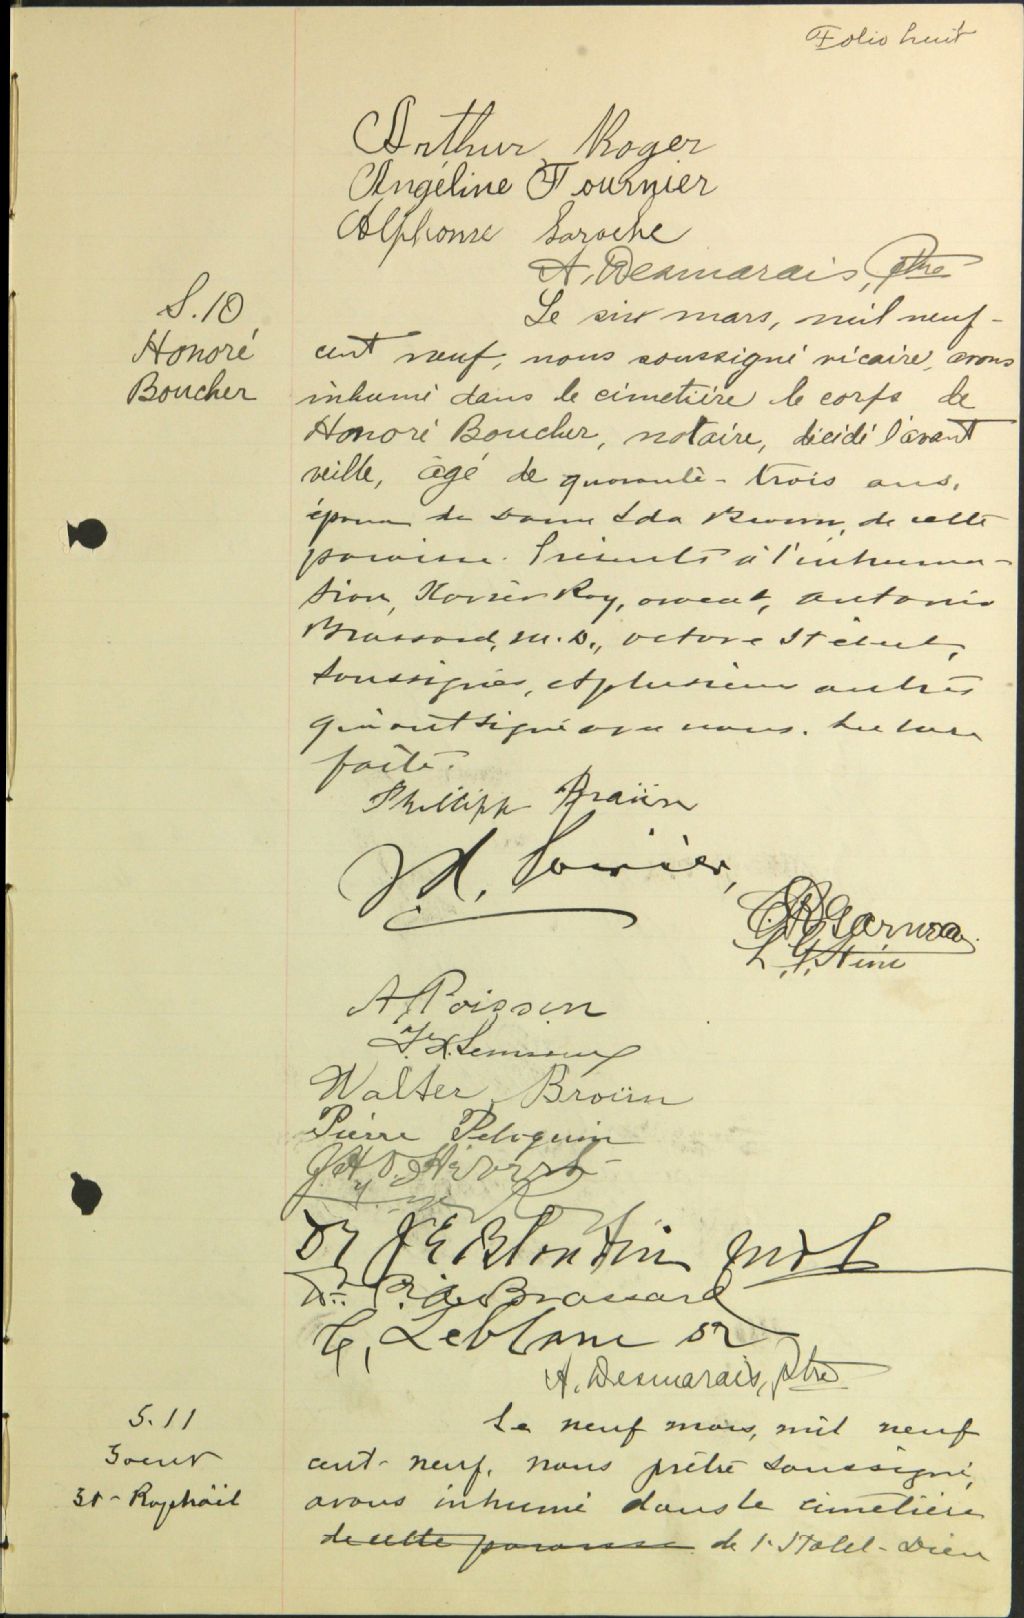 Folio huit
Arthur Roger
Angéline Fournier
Alphonse Laroche
A. Desmarais, Ptre
S.10
Honoré
Boucher
Le six mars, mil neuf-
cent neuf, nous soussigné vicaire, avons
inhumé dans le cimetière le corps de
Honoré Boucher, notaire, décédé l'avant
veille, âgé de quarante-trois ans,
époux de Dame Ida Brown, de cette
paroisse. Présents à l'inhuma-
tion, Xavier Roy, avocat, Antonio
Brassard, M.D., Octave
soussignés, et plusieurs autres
qui ont signé avec nous. Lecture
faite.
Phillipp Braün
A. Poisson
Walter Broün
Pierre Peloquin
Dr J E Blondin
Brassard
Leblanc
A. Desmarais, Ptre
S.11
Soeur
St-Raphäel
Le neuf mars, mil neuf
cent-neuf, nous prêtre soussigné,
avons inhumé dans le cimetière
de cette paroisse de l'Hotel-Dieu